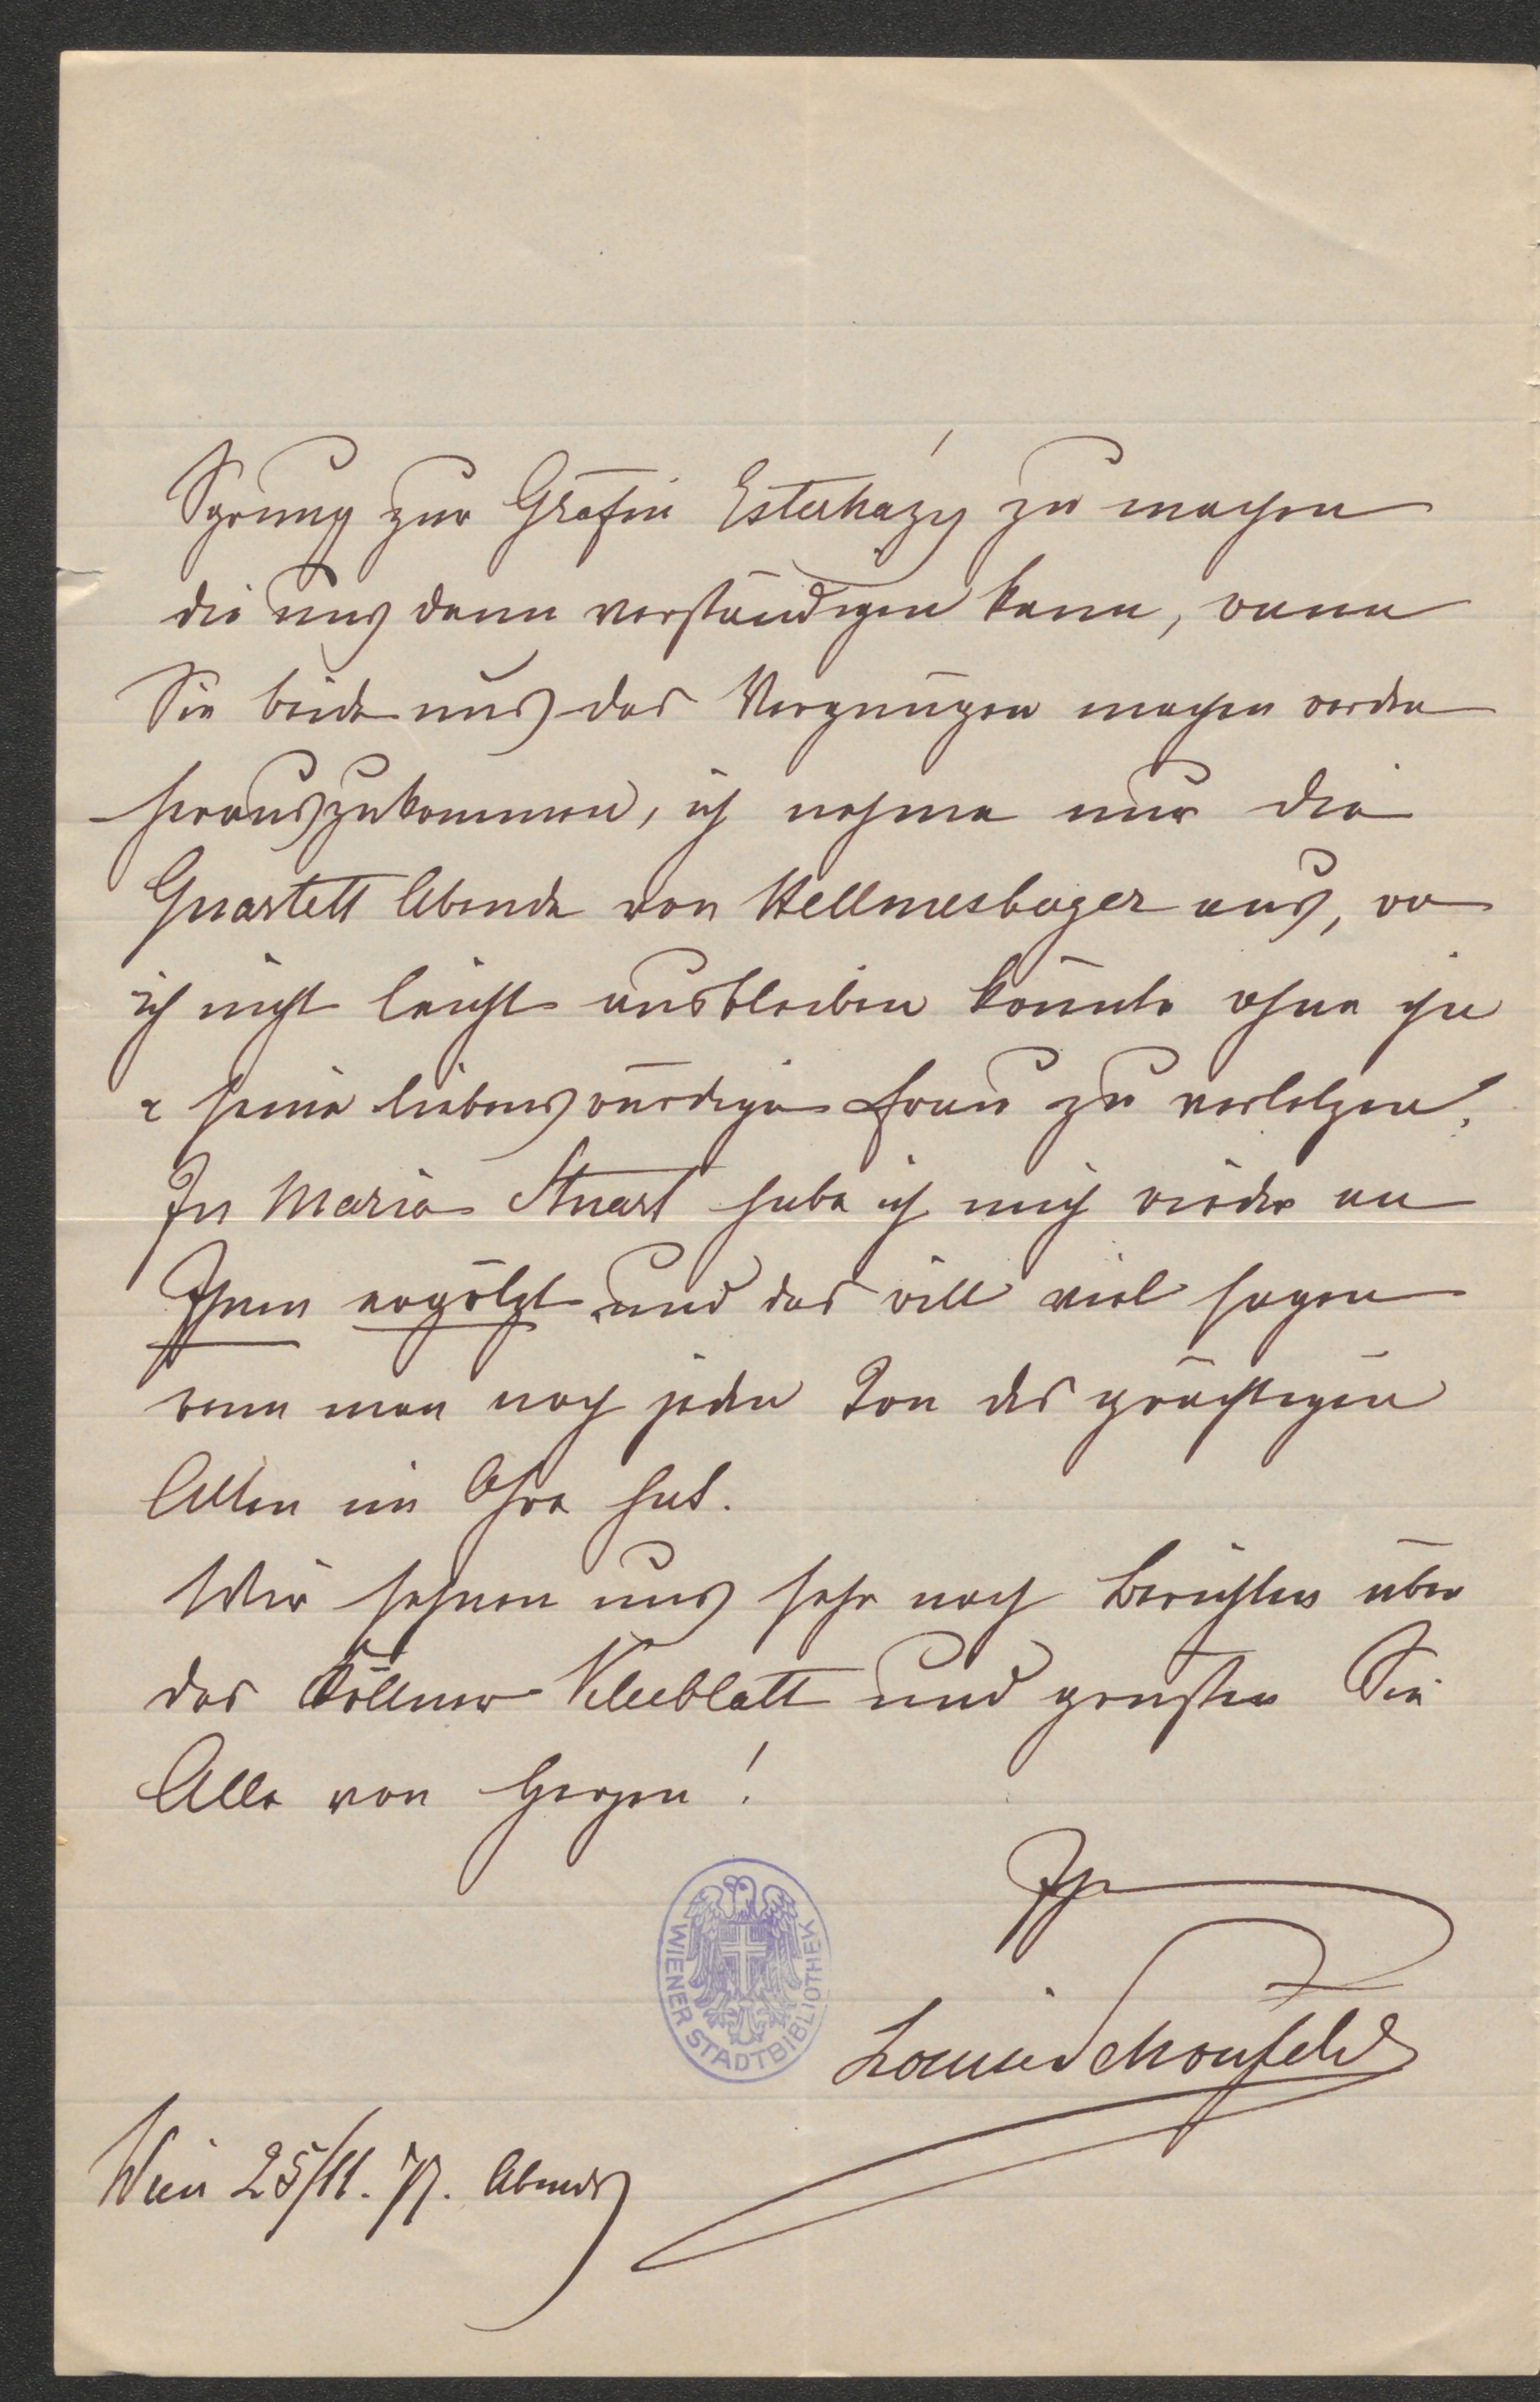 Sprung zur Gräfin Esterházy zu machen
die uns dann verständigen kann, wann
Sie beide uns das Vergnügen machen werden
herauszukommen, ich nehme nur die
Quartett Abende von Hellmesberger aus, wo
ich nicht leicht ausbleiben könnte ohne ihn
& seine liebenswürdige Frau zu verletzen.
In Maria Stuart habe ich mich wieder an
Ihnen ergötzt und das will viel sagen
wenn man noch jeden Ton des prächtigen
Alten im Ohre hat.
Wir sehnen uns sehr nach Berichten über
das Köllner Kleeblatt und grüßen Sie
Alle von Herzen!
Ihr
Louise Schönfeld
Wien 25/11. 77. Abends
WIENER STADTBIBLIOTHEK